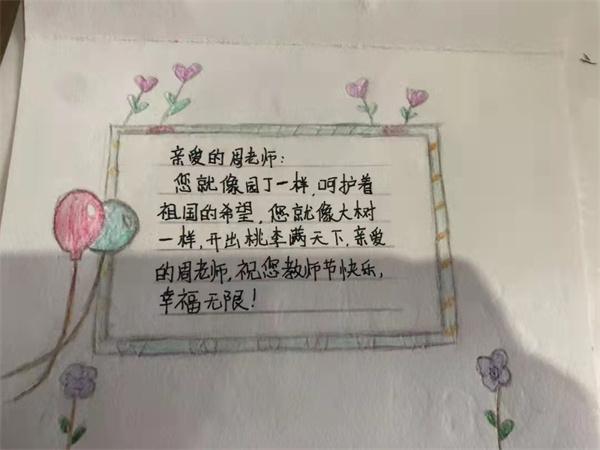 亲爱的周老师:
您就像园丁一样,呵护着
祖国的希望,您就像大树
一样,开出桃李满天下,亲爱
的周老师,祝您教师节快乐,
幸福无限!